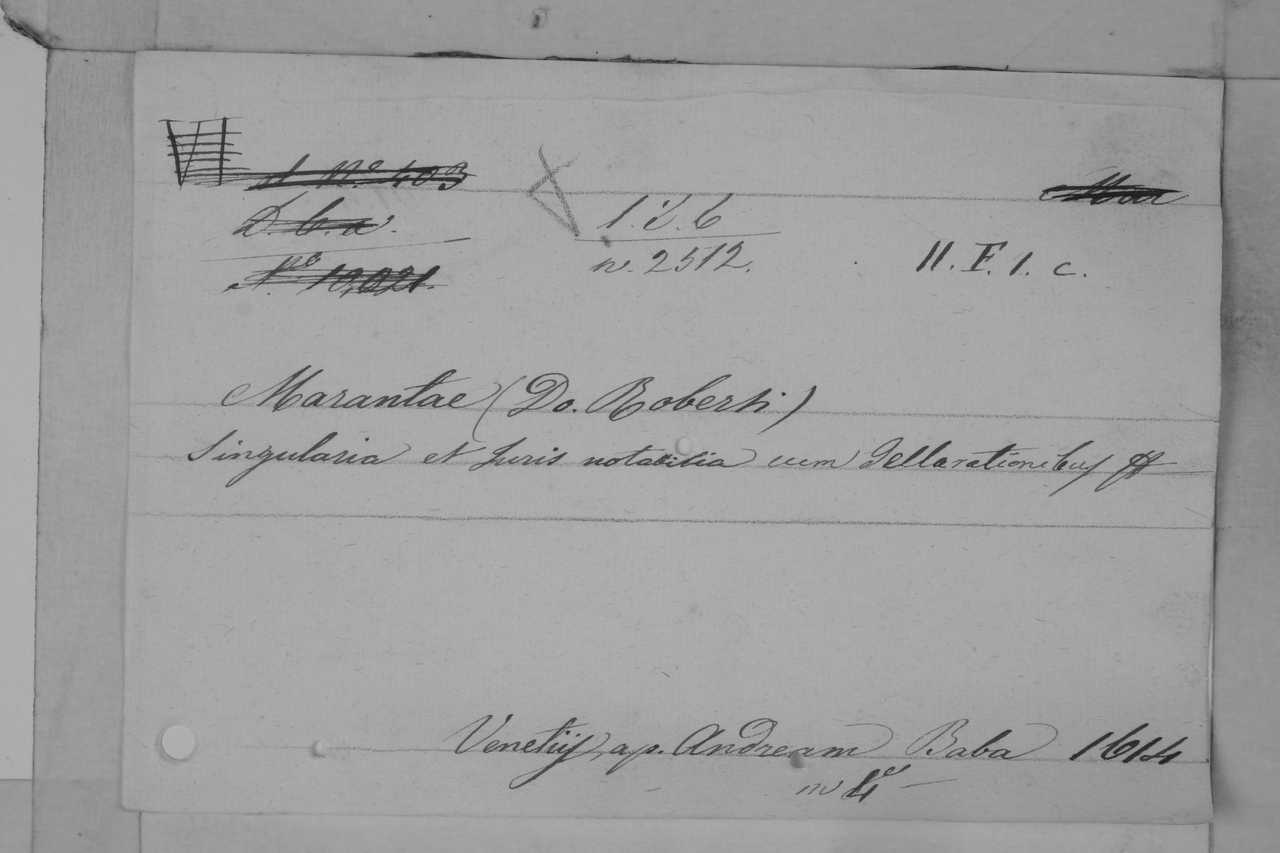 VII
d N.º 403
D. b. a.
N.ro 10,021.
1. i. 6
n. 2512.
11. F. 1. c.
Marantae (Do. Roberti)
Singularia et Juris notabilia cum Dellarationibus
Venetijs, ap. Andream Baba 1614
in 4º